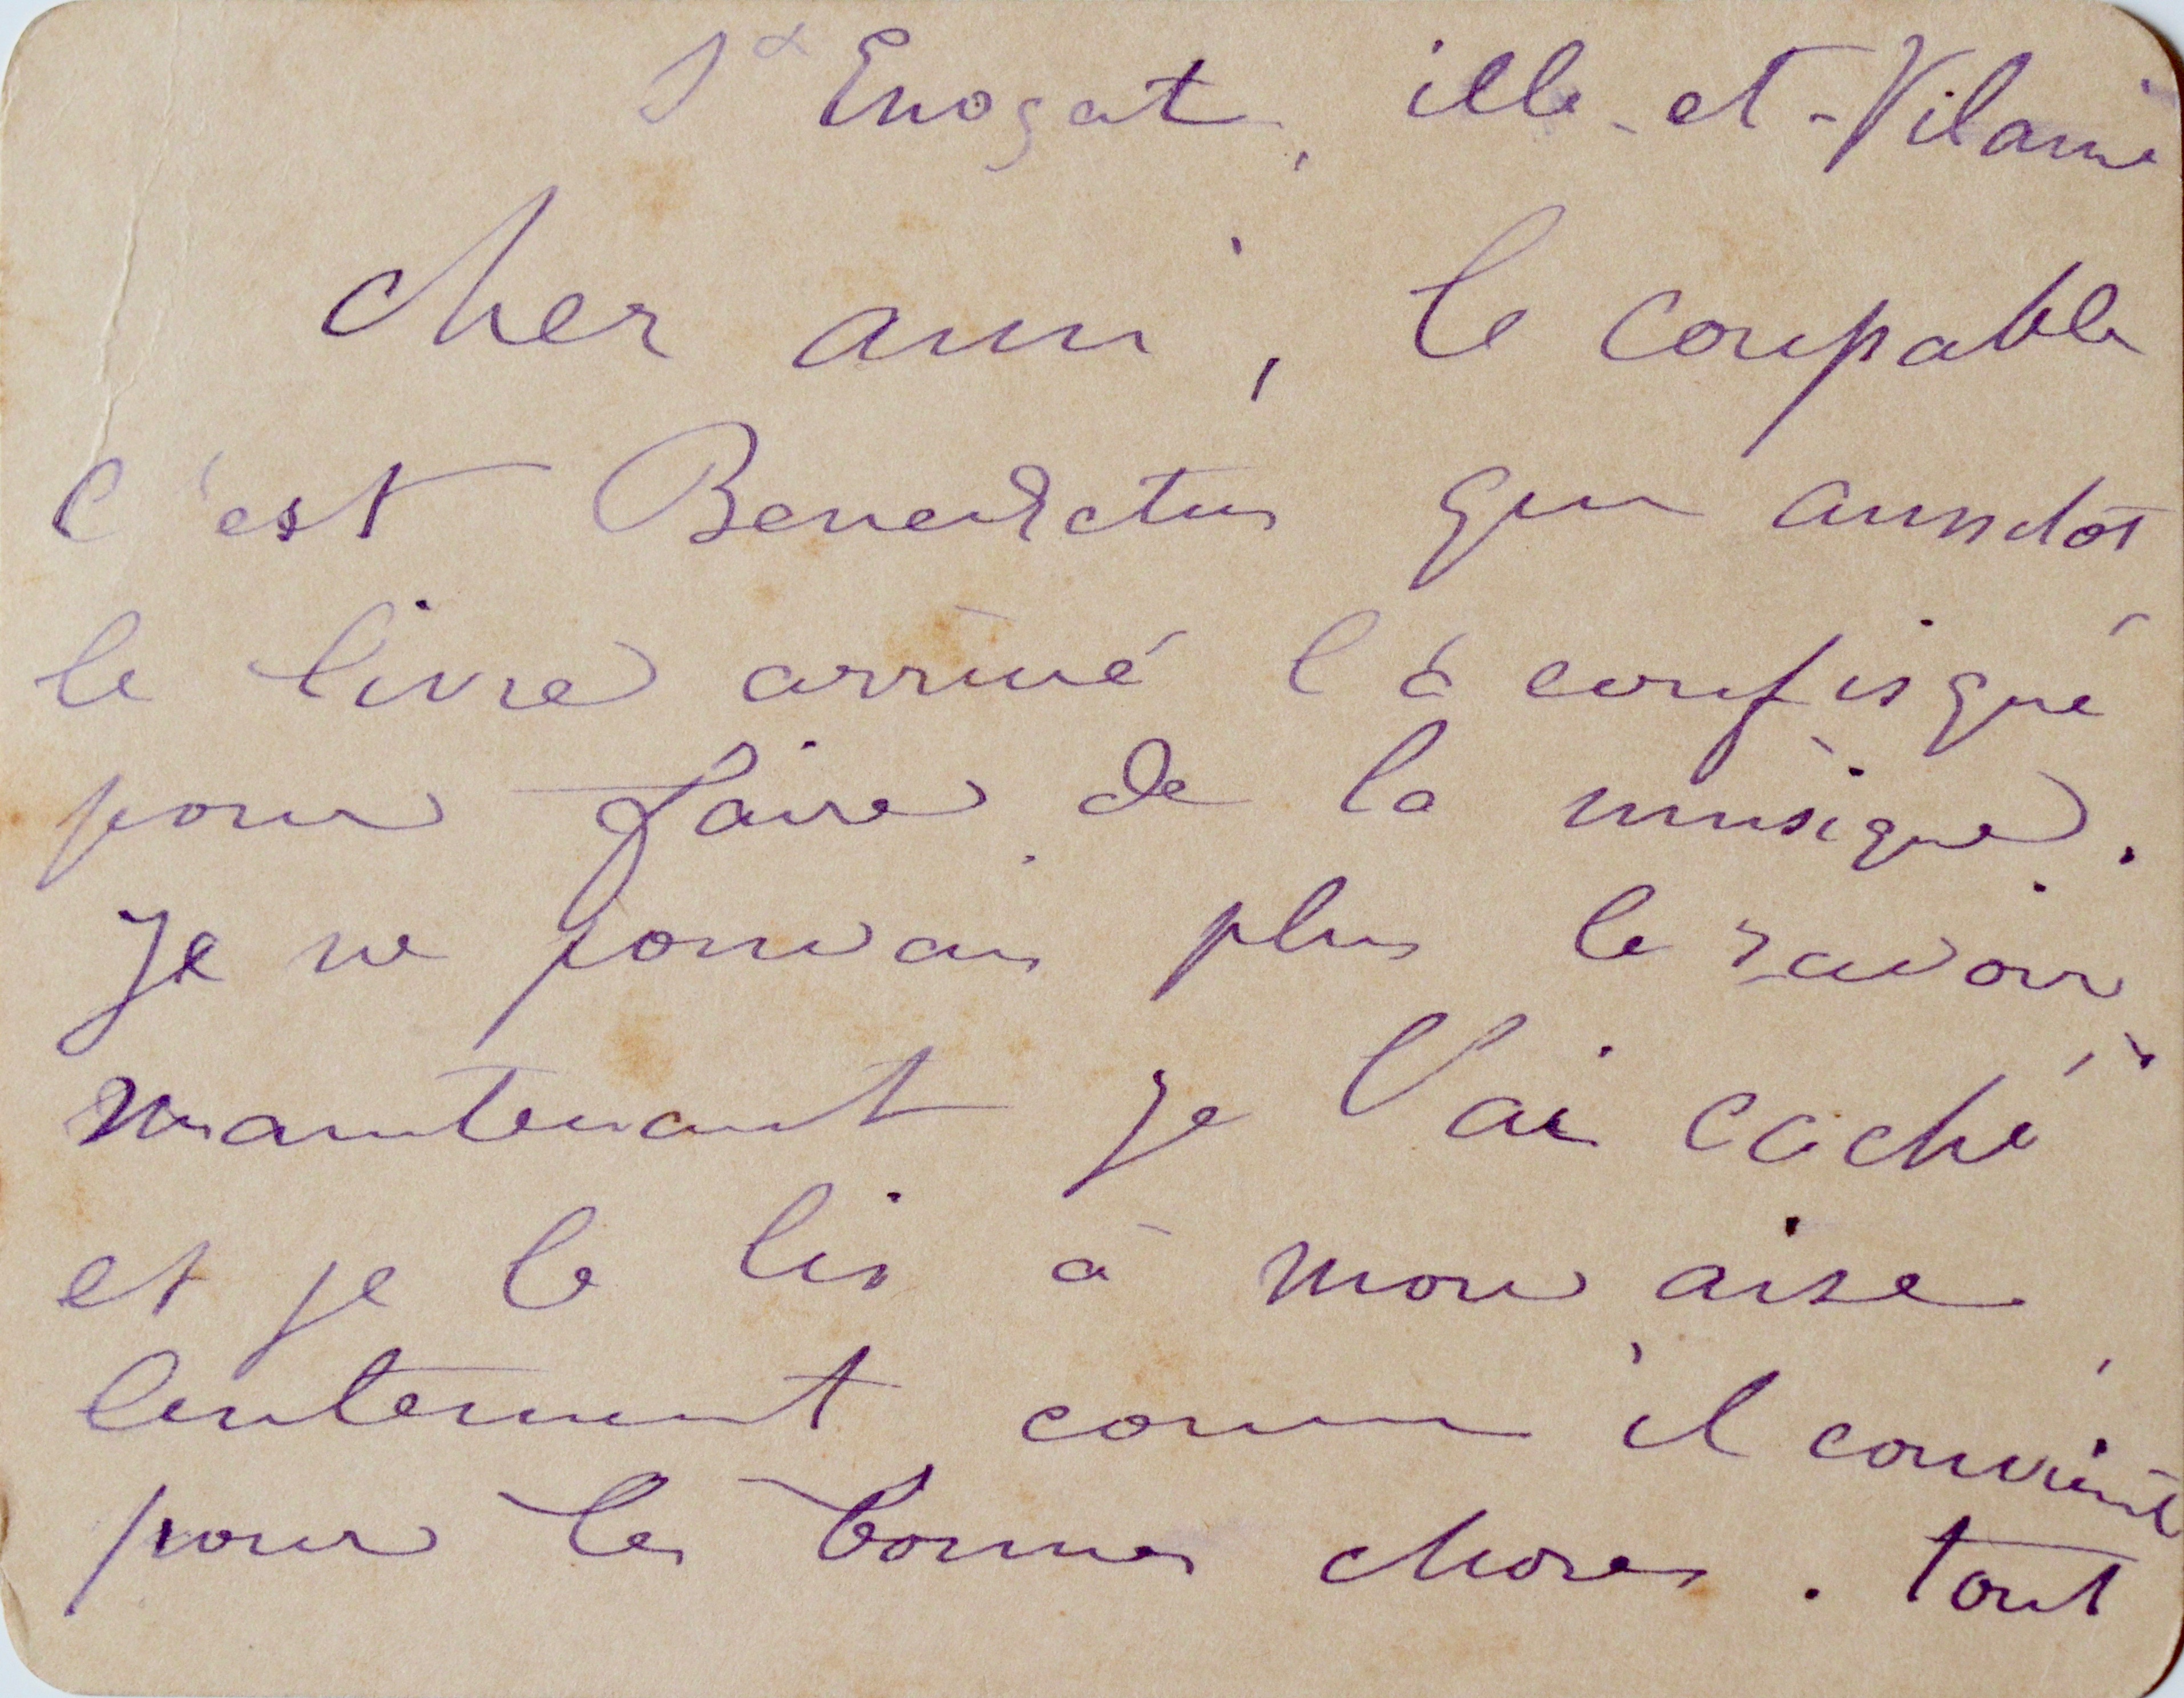 St Enogat, ille-et-Vilaine
cher ami, le coupable
c'est Benedictus qui aussitôt
le livre arrivé l'a confisqué
pour faire de la musique.
Je ne pouvais plus le ravoir,
maintenant je l'ai caché
et je le lis à mon aise,
lentement comme il convient
pour les bonnes choses. tout